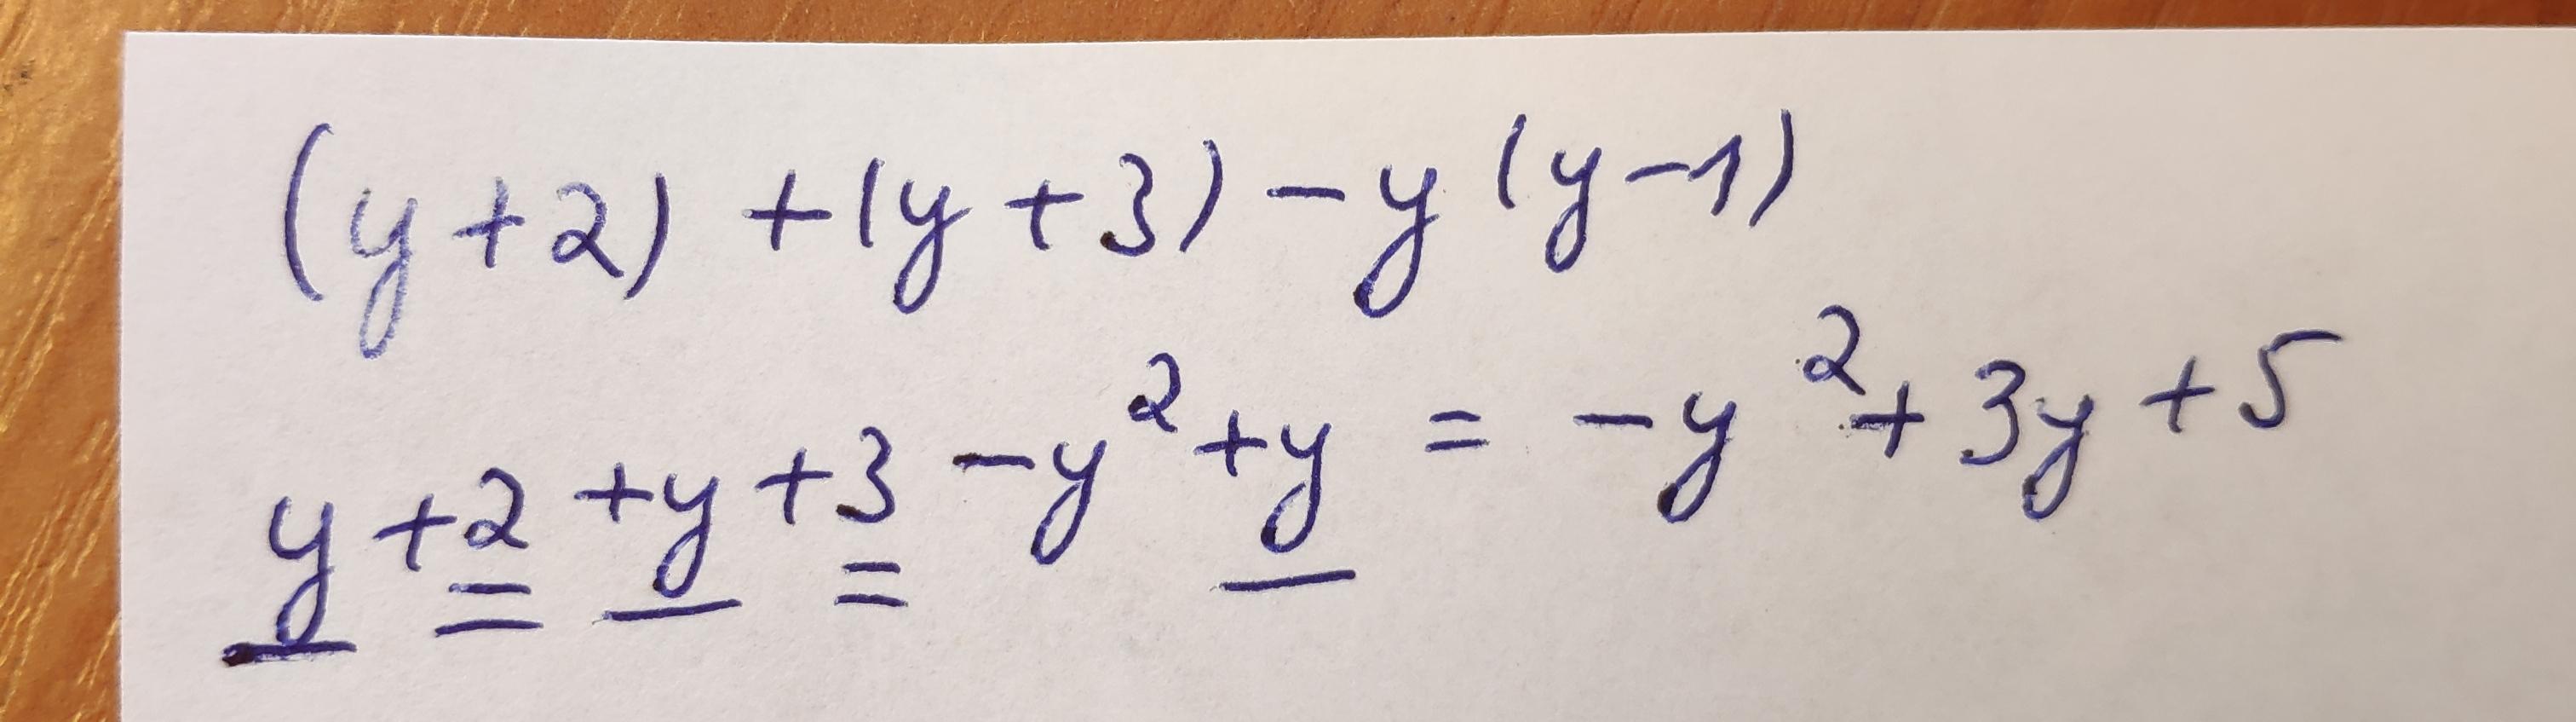 (y+2) + (y+3) - y (y-1)
y+2 +y +3 -y² +y = -y² + 3y +5